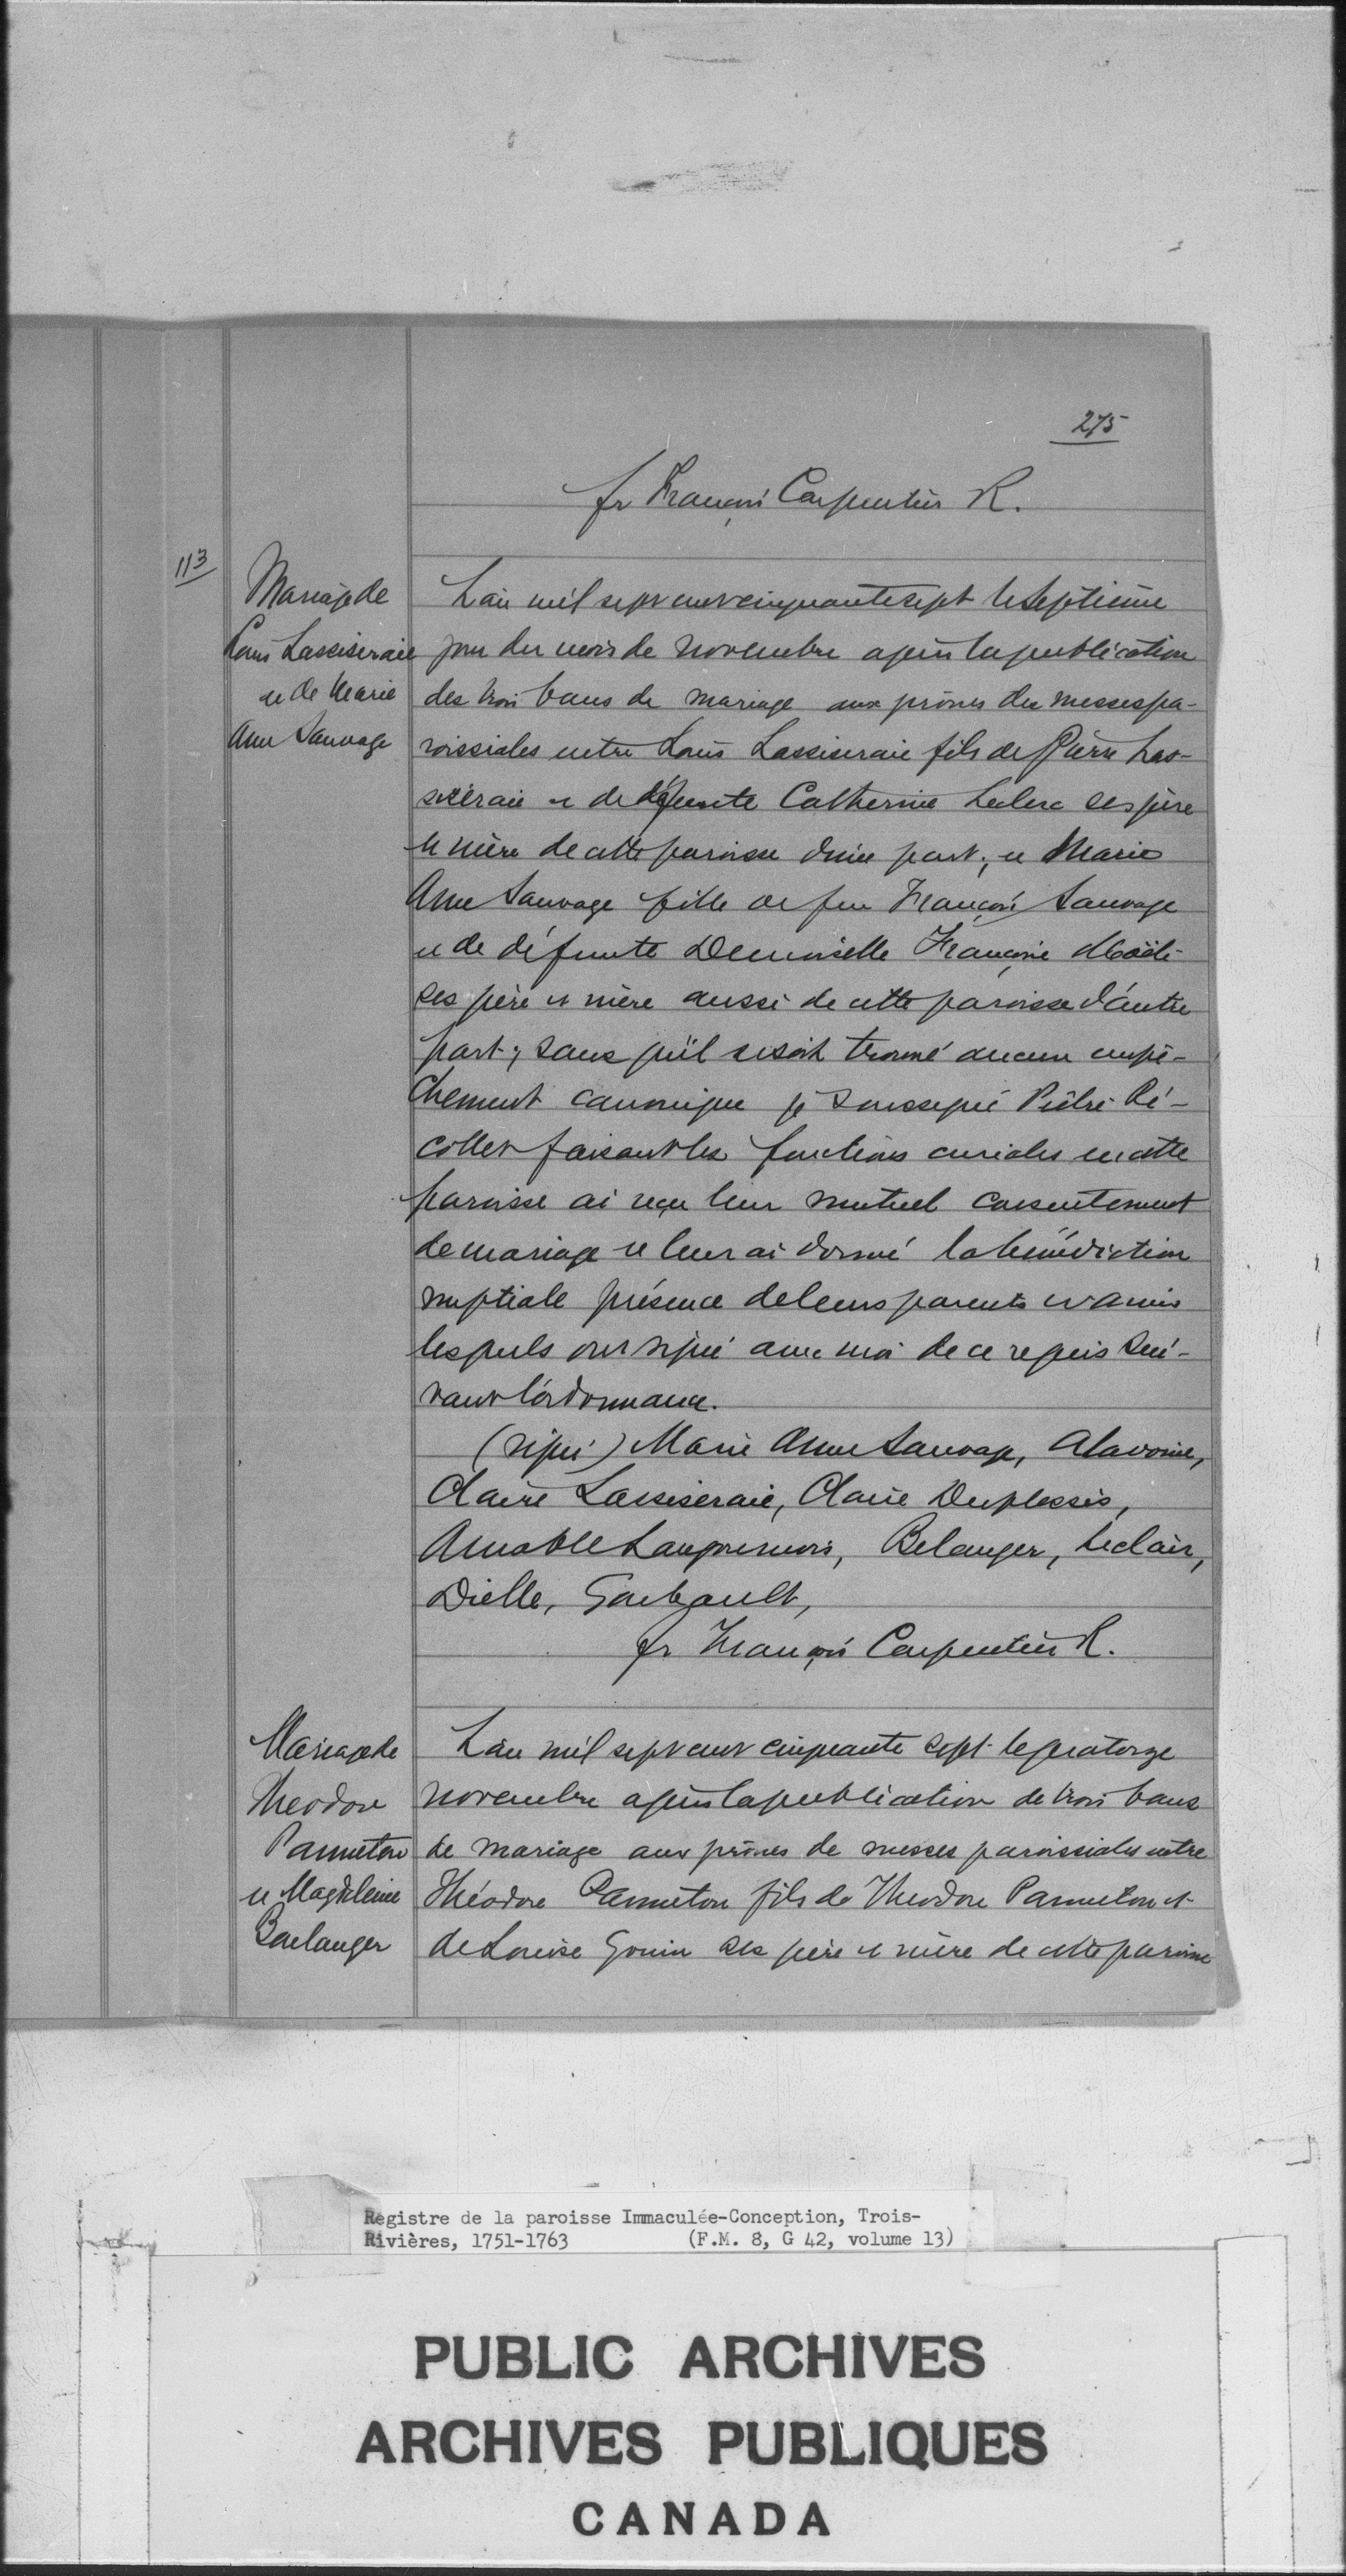 275
fr François Carpentier R.
113
Mariage de
Louis Lassiseraie
et de Marie
Anne Sauvage
L'an mil sept cent cinquante sept le septième
jour du mois de novembre après la publication
des trois bans de mariage aux prônes des messes pa-
roissiales entre Louis Lassiseraie fils de Pierre Las-
siséraie et de défunte Catherine Leclerc ses père
et mère de cette paroisse d'une part; et Marie
Anne Sauvage fille de feu François Sauvage
et de défunte Demoiselle Françoise
ses père et mère aussi de cette paroisse d'autre
part; sans qu'il se soit trouvé aucun empê-
chement canonique je soussigné Prêtre Ré-
collet faisant les fonctions curiales en cette
paroisse ai reçu leur mutuel consentement
de mariage et leur ai donné la bénédiction
nuptiale présence de leurs parents et amis
lesquels ont signé avec moi de ce requis sui-
vant l'ordonnance.
(signé) Marie Anne Sauvage, Alavoine,
Claire Lassiseraie, Claire Duplessis,
Amable Belanger, Leclair,
Dielle, Godbault,
fr François Carpentier R.
Mariage de
Theodore
Panneton
et Magdeleine
Boulanger
L'an mil sept cent cinquante sept le quatorze
novembre après la publication de trois bans
de mariage aux prônes de messes paroissiales entre
Théodore Panneton fils de Theodore Panneton et
de Louise Gouin ses père et mère de cette paroisse
Registre de la paroisse Immaculée-Conception, Trois-
Rivières, 1751-1763 (F.M. 8, G 42, volume 13)
PUBLIC ARCHIVES
ARCHIVES PUBLIQUES
CANADA